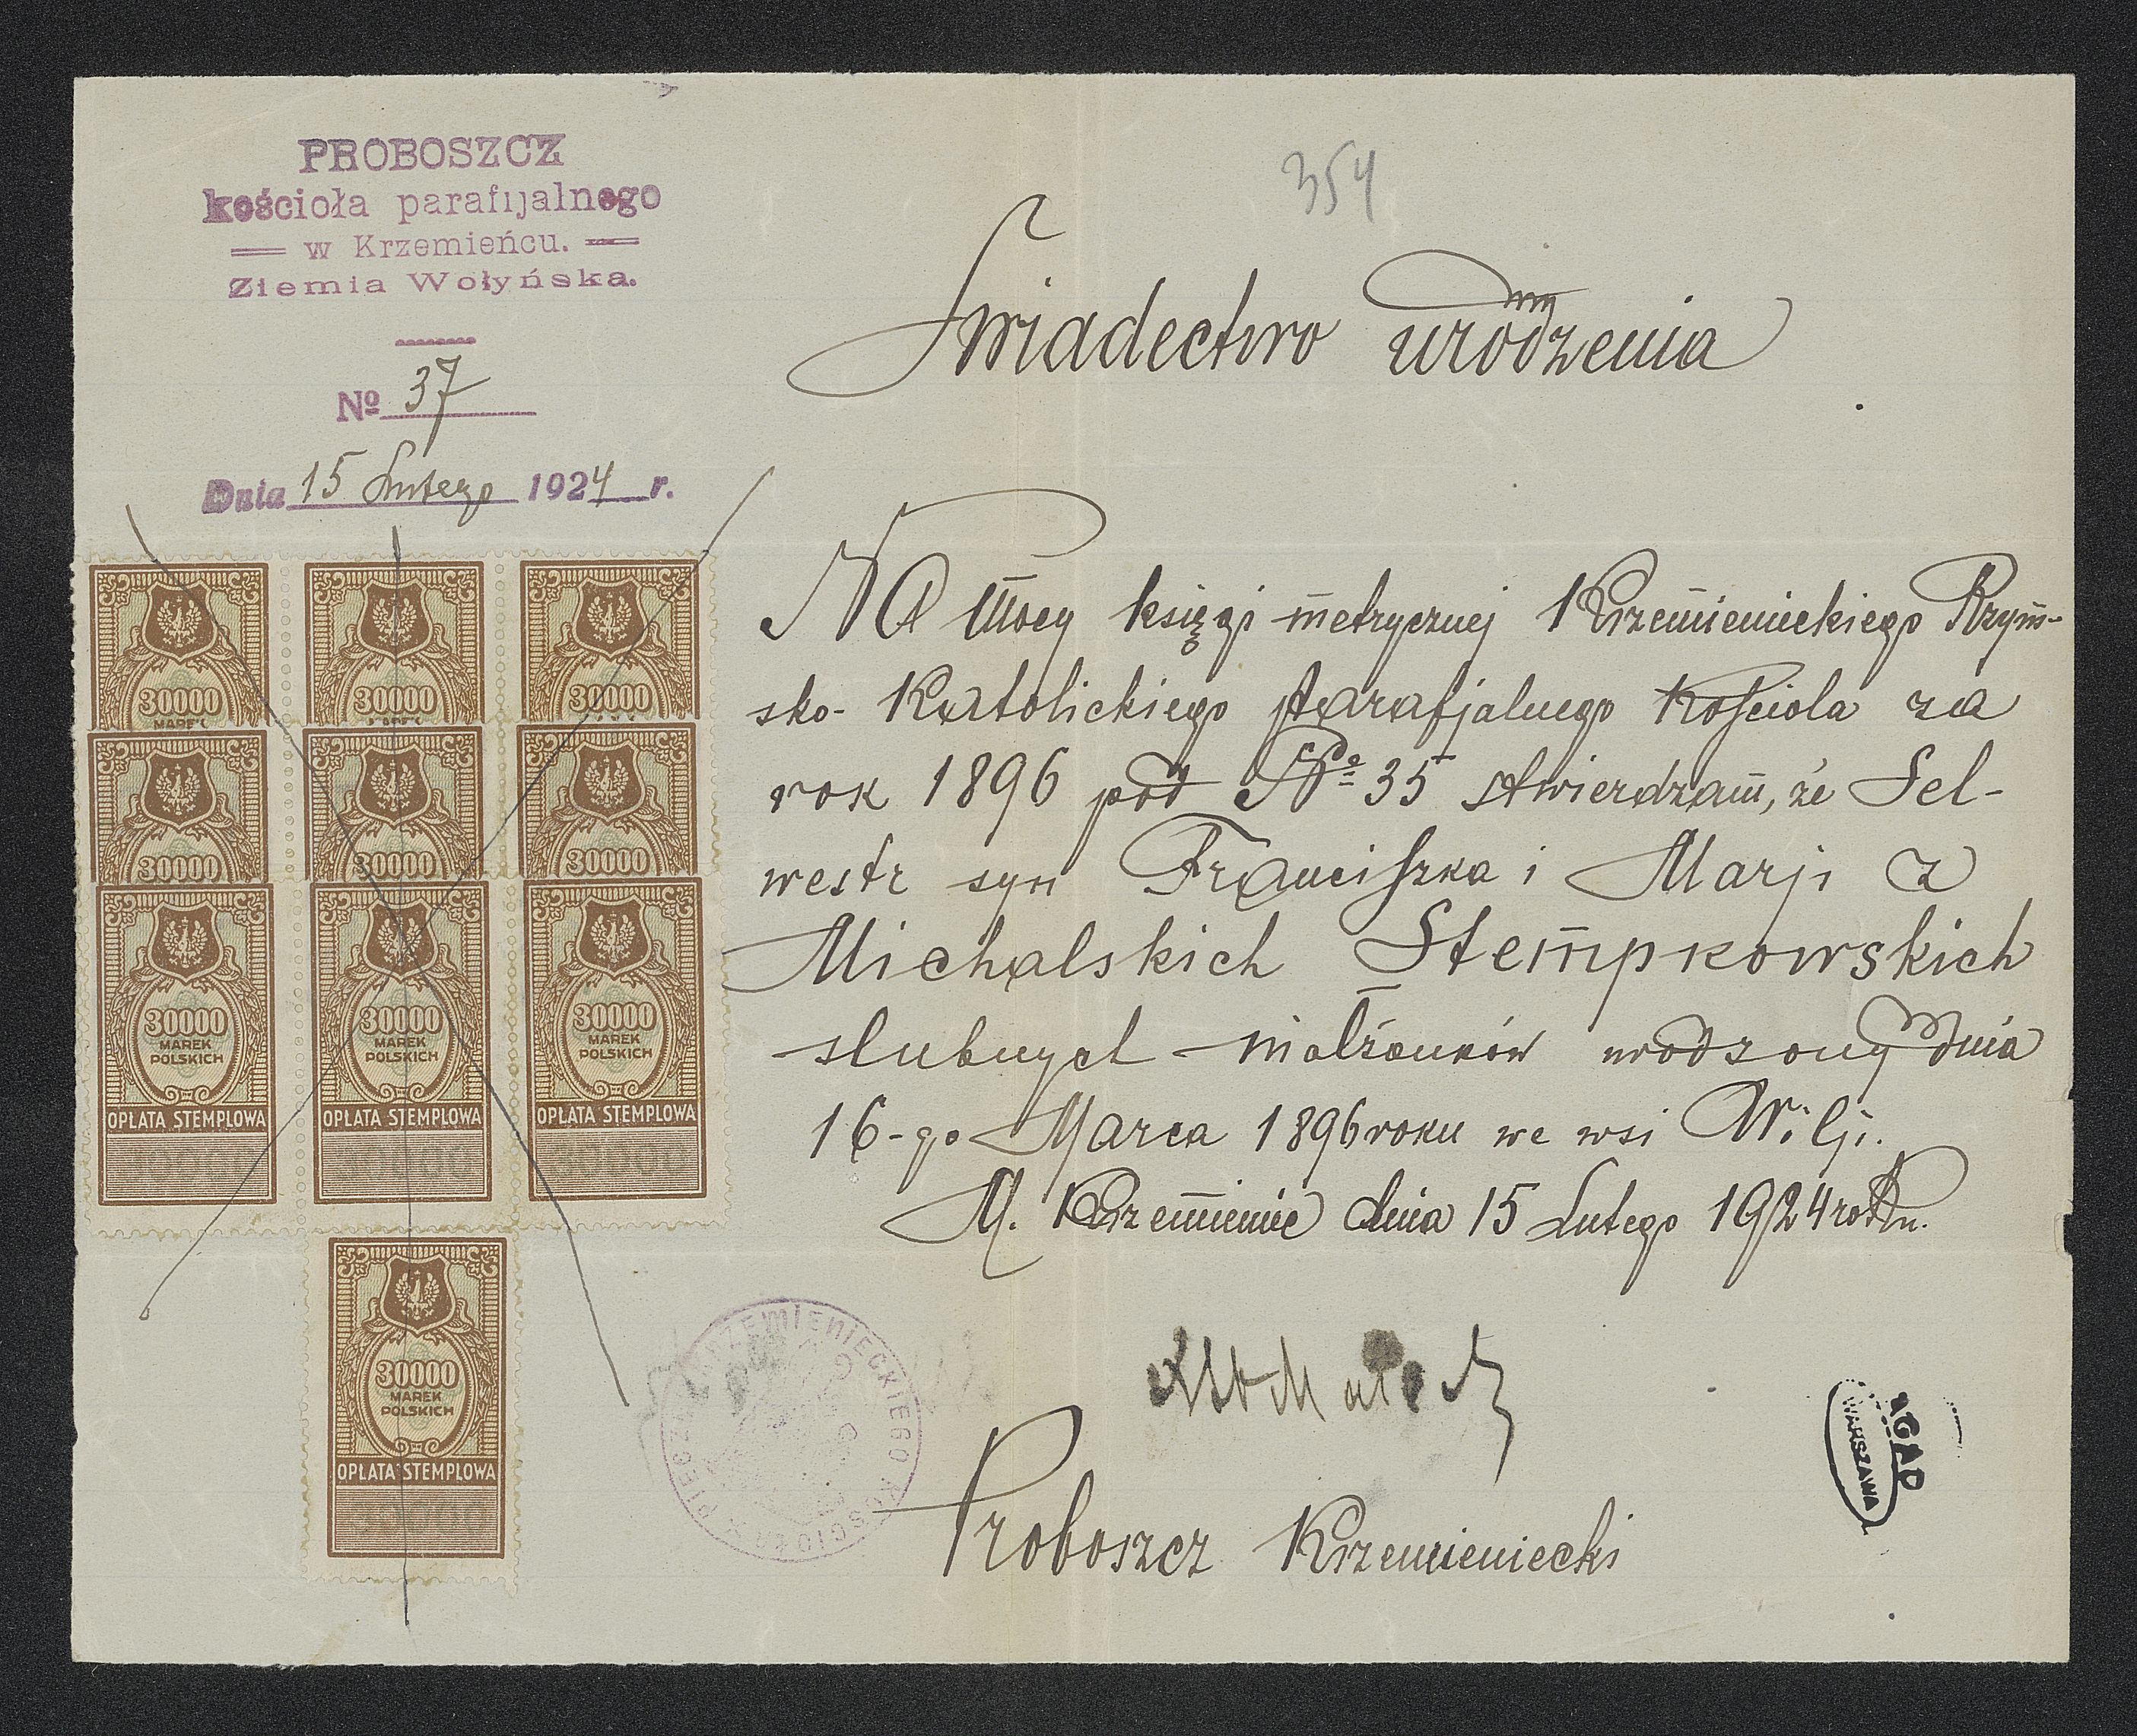 354
PROBOSZCZ
kościoła parafijalnego
w Krzemieńcu.
Ziemia Wołyńska.
№ 37
Dnia 15 Lutego 1924 r.
Świadectwo urodzenia
Na mocy księgi metrycznej Krzemienieckiego Rzym-
sko-Katolickiego parafjalnego Kościoła za
rok 1896 pod № 35 stwierdzam, że Sel-
westr syn Franciszka i Marji z
Michalskich Stempkowskich
ślubnych małżonków urodzony dnia
16-go Marca 1896 roku we wsi Wilji.
M. Krzemieniec dnia 15 Lutego 1924 roku.
Proboszcz Krzemieniecki
30000 MAREK
30000 MAREK
30000
30000
30000
30000
30000 MAREK POLSKICH
OPŁATA STEMPLOWA
30000 MAREK POLSKICH
OPŁATA STEMPLOWA
30000 MAREK POLSKICH
OPŁATA STEMPLOWA
30000 MAREK POLSKICH
OPŁATA STEMPLOWA
KRZEMIENIECKIEGO KOŚCIOŁA
AGAD
WARSZAWA